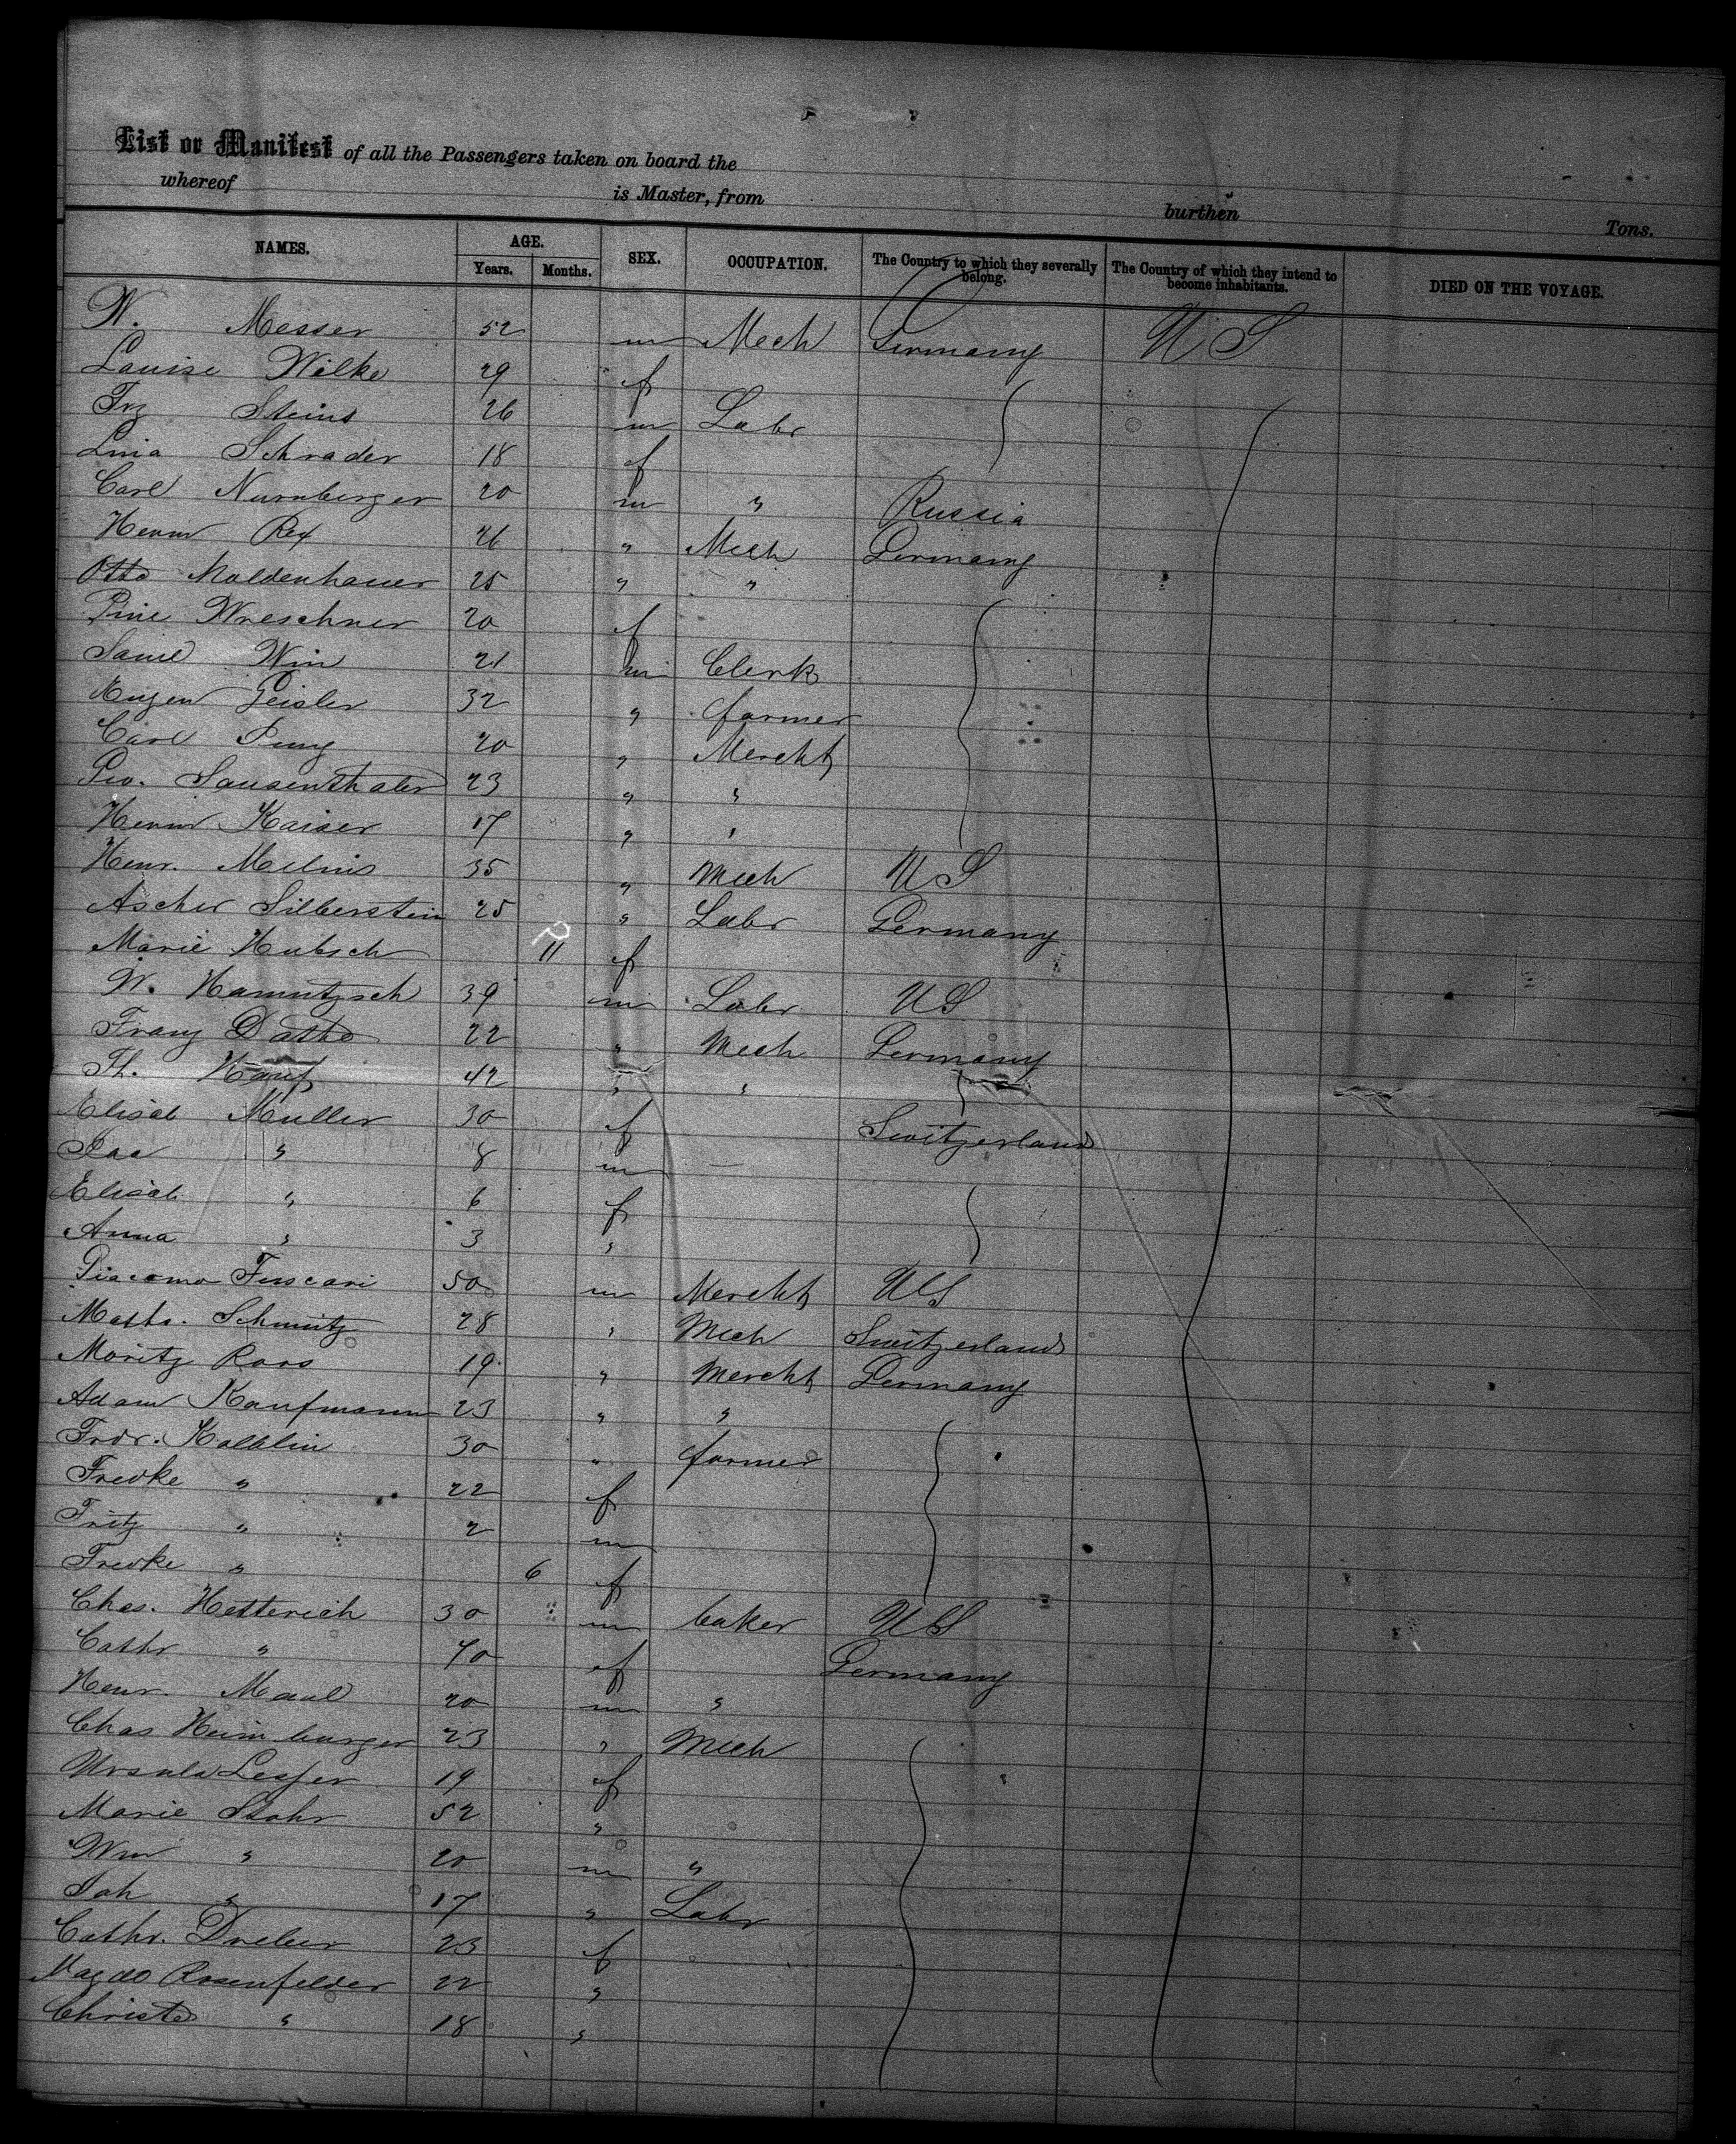 List or Manifest of all the Passengers taken on board the
whereof is Master, from burthen Tons.
NAMES. AGE. SEX. OCCUPATION. The Country to which they severally belong. The Country of which they intend to become inhabitants. DIED ON THE VOYAGE.
Years. Months.
W. Messer 52 m Mech Germany U S
Louise Wilke 29 f
Frz Steins 26 m Labr
Lina Schrader 18 f
Carl Nurnberger 20 m " Russia
Herm Rex 26 " Mech Germany
Otto Moldenhauer 25 " "
Wreschner 20 f
Saml Win 21 m Clerk
Eugen Geisler 32 " farmer
Carl 20 " Mercht
Geo. Sausenthaler 23 " "
Herm Kaiser 17 " "
Henr. 35 " Mech U S
Ascher Silberstein 25 " Labr Germany
Marie Hubsch 11 f
W. Hamutzsch 39 m Labr U S
Franz Datho 22 " Mech Germany
Th. 42 " "
Elisab Muller 30 f Switzerland
" 8 m
Elisab " 6 f
Anna " 3 "
Giacomo Fuscari 50 m Mercht U S
Mathr. Schmitz 28 " Mech Switzerland
Moritz Roos 19 " Mercht Germany
Adam Kaufmann 23 " "
Frdr. Kolblin 30 " farmer
Fredke " 22 f
Fritz " 2 m
Fredke " 6 f
Chas. Hetterich 30 m baker U S
Cathr " 40 f Germany
Henr. Maul 20 m "
Chas Heimburger 23 " Mech
Ursula Lesser 19 f
Marie Stohr 52 "
Wm " 20 m "
Joh " 17 " Labr
Cathr. Dreher 23 f
Magda Rosenfelder 22 "
Christe " 18 "